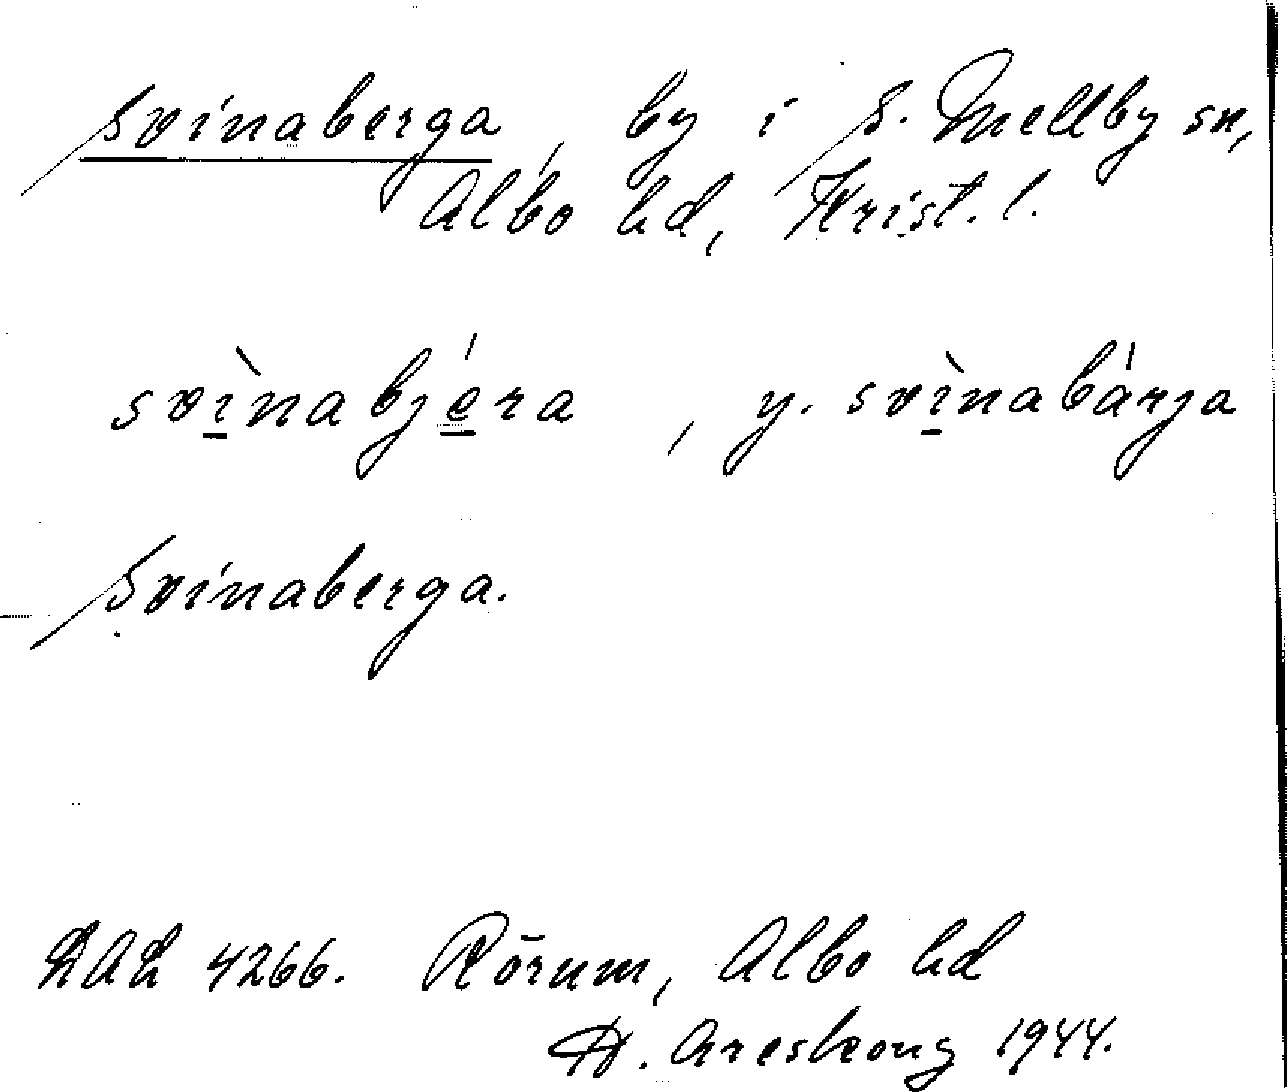 Svinaberga, by i S. Mellby sn,
Albo hd, Krist. l.
svìnabjéra, y. svìnabárja
Svinaberga.
DAL 4266. Rörum, Albo hd
H. Areskoug 1944.